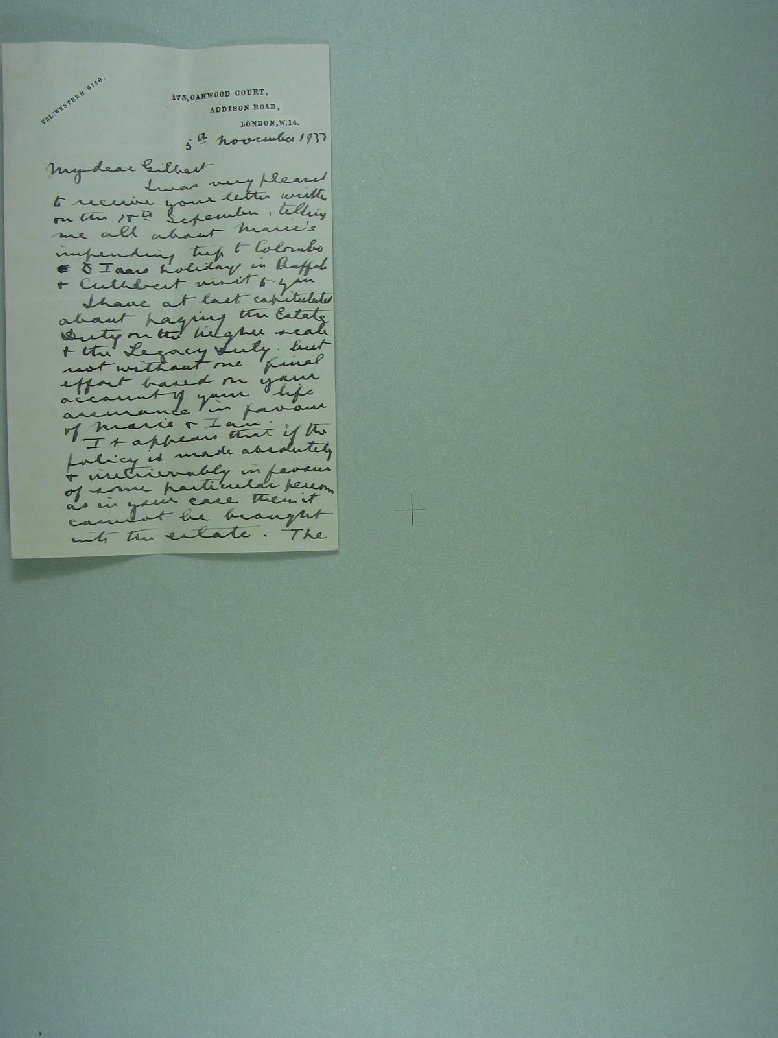 TEL: WESTERN
OAKWOOD COURT,
ADDISON ROAD,
LONDON, W.14.
5th November 1937
My dear Gilbert
I was very pleased
to receive your letter written
on the September, telling
me all about Marie's
impending trip to Colombo
holiday in
& Cuthbert visit to you
I have at last capitulated
about paying the Estate
Duty on the higher scale
& the Legacy Duty. but
not without one final
effort based on your
account of your life
assurance in favour
of Marie & Ian.
It appears that if the
policy is made absolutely
& irretrievably in favour
of some particular person
as in your case then it
cannot be brought
into the estate. The